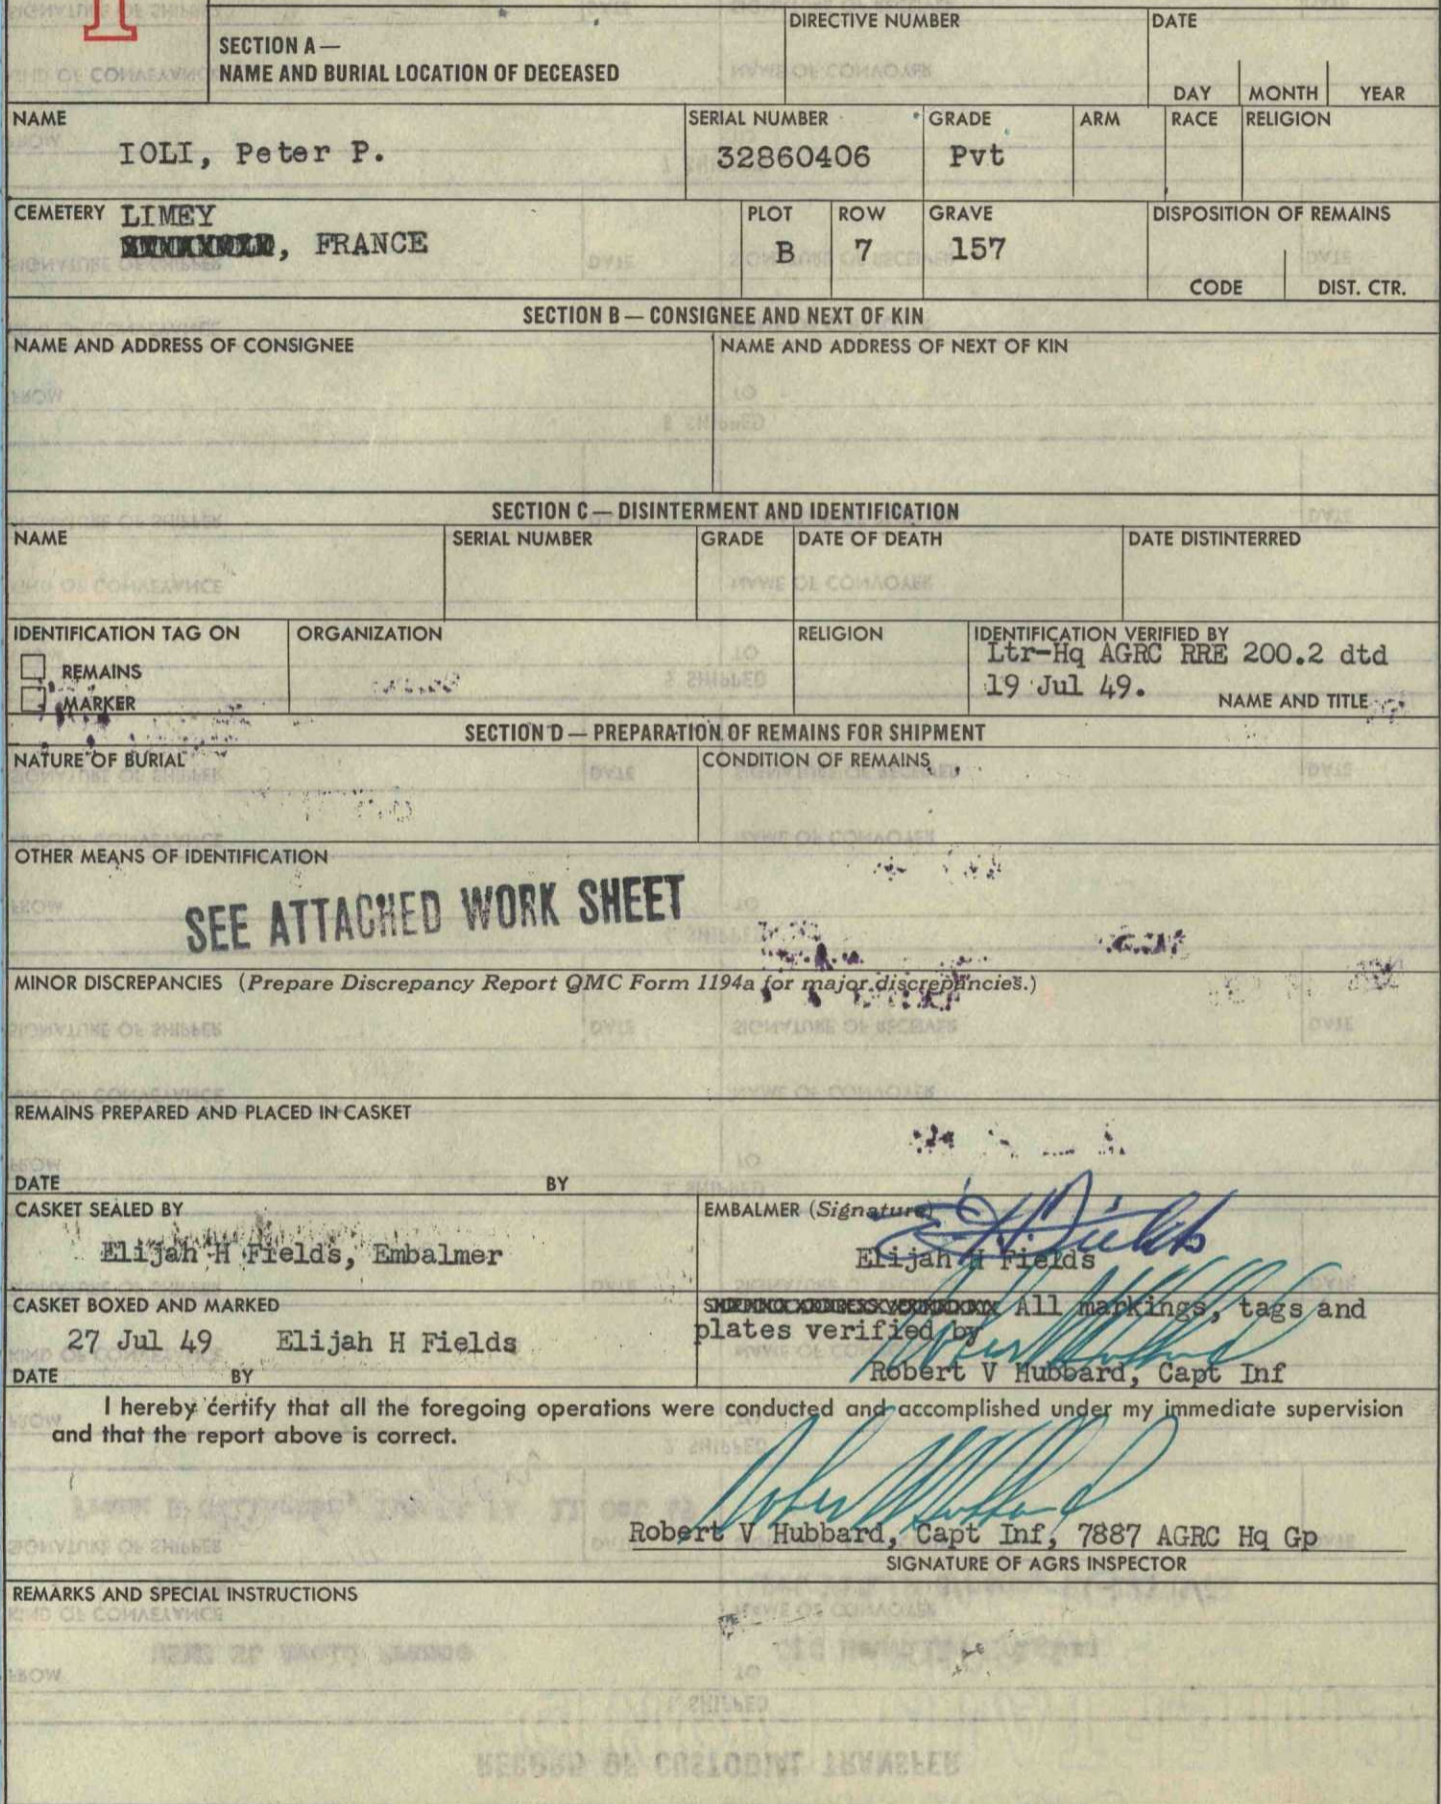 SECTION A—
NAME AND BURIAL LOCATION OF DECEASED
DIRECTIVE NUMBER
DATE
DAY MONTH YEAR
NAME
IOLI, Peter P.
SERIAL NUMBER
32860406
GRADE
Pvt
ARM
RACE
RELIGION
CEMETERY LIMEY
, FRANCE
PLOT
B
ROW
7
GRAVE
157
DISPOSITION OF REMAINS
CODE DIST. CTR.
SECTION B — CONSIGNEE AND NEXT OF KIN
NAME AND ADDRESS OF CONSIGNEE
NAME AND ADDRESS OF NEXT OF KIN
SECTION C — DISINTERMENT AND IDENTIFICATION
NAME
SERIAL NUMBER
GRADE
DATE OF DEATH
DATE DISTINTERRED
IDENTIFICATION TAG ON
REMAINS
MARKER
ORGANIZATION
RELIGION
IDENTIFICATION VERIFIED BY
Ltr-Hq AGRC RRE 200.2 dtd
19 Jul 49.
NAME AND TITLE
SECTION D — PREPARATION OF REMAINS FOR SHIPMENT
NATURE OF BURIAL
CONDITION OF REMAINS
OTHER MEANS OF IDENTIFICATION
SEE ATTACHED WORK SHEET
MINOR DISCREPANCIES (Prepare Discrepancy Report QMC Form 1194a for major discrepancies.)
REMAINS PREPARED AND PLACED IN CASKET
DATE BY
CASKET SEALED BY
Elijah H Fields, Embalmer
EMBALMER (Signature)
E H Fields
Elijah H Fields
CASKET BOXED AND MARKED
27 Jul 49 Elijah H Fields
DATE BY
All markings, tags and
plates verified by
Robert V Hubbard
Robert V Hubbard, Capt Inf
I hereby certify that all the foregoing operations were conducted and accomplished under my immediate supervision
and that the report above is correct.
Robert V Hubbard
Robert V Hubbard, Capt Inf, 7887 AGRC Hq Gp
SIGNATURE OF AGRS INSPECTOR
REMARKS AND SPECIAL INSTRUCTIONS